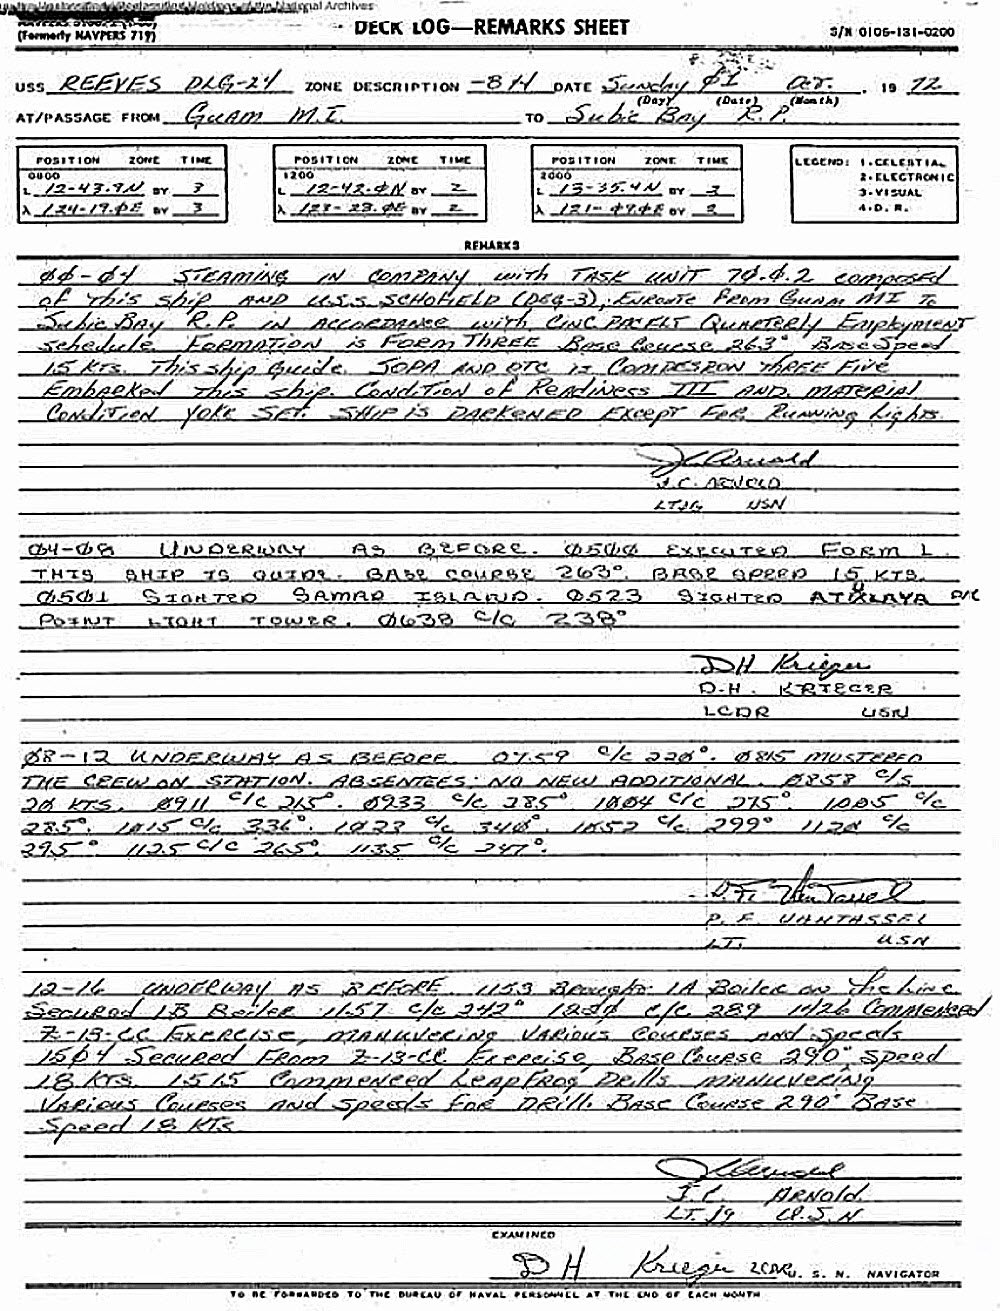 National Archives
(Formerly NAVPERS 719)
DECK LOG—REMARKS SHEET
S/N 0105-131-0200
USS REEVES DLG-24 ZONE DESCRIPTION -8H DATE Sunday Ø1 Oct. 19 72
(Day) (Date) (Month)
AT/PASSAGE FROM GUAM M.I. TO Subic Bay R.P.
POSITION ZONE TIME
0800
L 12-43.9N BY 3
λ 124-19.ØE BY 3
POSITION ZONE TIME
1200
L 12-42.ØN BY 2
λ 123-23.ØE BY 2
POSITION ZONE TIME
2000
L 13-35.4N BY
λ 121-49.ØE BY
LEGEND: 1.CELESTIAL
2.ELECTRONIC
3.VISUAL
4.D. R.
REMARKS
ØØ-Ø4 STEAMING IN COMPANY with TASK UNIT 7Ø.Ø.2 composed
of this ship AND U.S.S. SCHOFIELD (DEG-3), ENROUTE FROM GUAM MI TO
Subic Bay R.P. IN ACCORDANCE with CINCPACFLT QUARTERLY Employment
Schedule. FORMATION is FORM THREE Base Course 263° Base Speed
15 KTS. This ship Guide. SOPA AND OTC is COMDESRON THREE FIVE
Embarked this ship. Condition of Readiness III AND MATERIAL
Condition YOKE SET. SHIP IS DARKENED EXCEPT FOR Running Lights.
J.C. Arnold
J.C. ARNOLD
LTJG USN
Ø4-Ø8 UNDERWAY AS BEFORE. Ø5ØØ EXECUTED FORM 1.
THIS SHIP IS GUIDE. BASE COURSE 263°. BASE SPEED 15 KTS.
Ø5Ø1 SIGHTED SAMAR ISLAND. Ø523 SIGHTED
POINT LIGHT TOWER. Ø638 C/C 238°
DH Krieger
D.H. KRIEGER
LCDR USN
Ø8-12 UNDERWAY AS BEFORE. 0759 C/C 220°. Ø815 MUSTERED
THE CREW ON STATION. ABSENTEES: NO NEW ADDITIONAL. Ø858 C/S
20 KTS. Ø911 C/C 215°. Ø933 C/C 285°. 1004 C/C 275°. 1005 C/C
285°. 1015 C/C 336°. 1023 C/C 340°. 1052 C/C 299° 1120 C/C
295° 1125 C/C 265°. 1135 C/C 247°.
P. F. VANTASSEL
LT. USN
12-16 UNDERWAY AS BEFORE. 1153 Brought 1A Boiler on the Line
Secured 1B Boiler 1157 C/C 242° C/C 289 1426 Commenced
Z-13-CC EXERCISE, MANUVERING VARIOUS COURSES AND Speeds
15Ø4 Secured From Z-13-CC Exercise, BASE Course 290° Speed
18 KTS. 1515 Commenced LEAPFROG Drills MANUVERING
VARIOUS COURSES AND Speeds FOR DRILL. BASE COURSE 290° BASE
Speed 18 KTS
J.C. Arnold
J.C. ARNOLD
LT.jg U.S.N
EXAMINED
DH Krieger LCDR U. S. N. NAVIGATOR
TO BE FORWARDED TO THE BUREAU OF NAVAL PERSONNEL AT THE END OF EACH MONTH